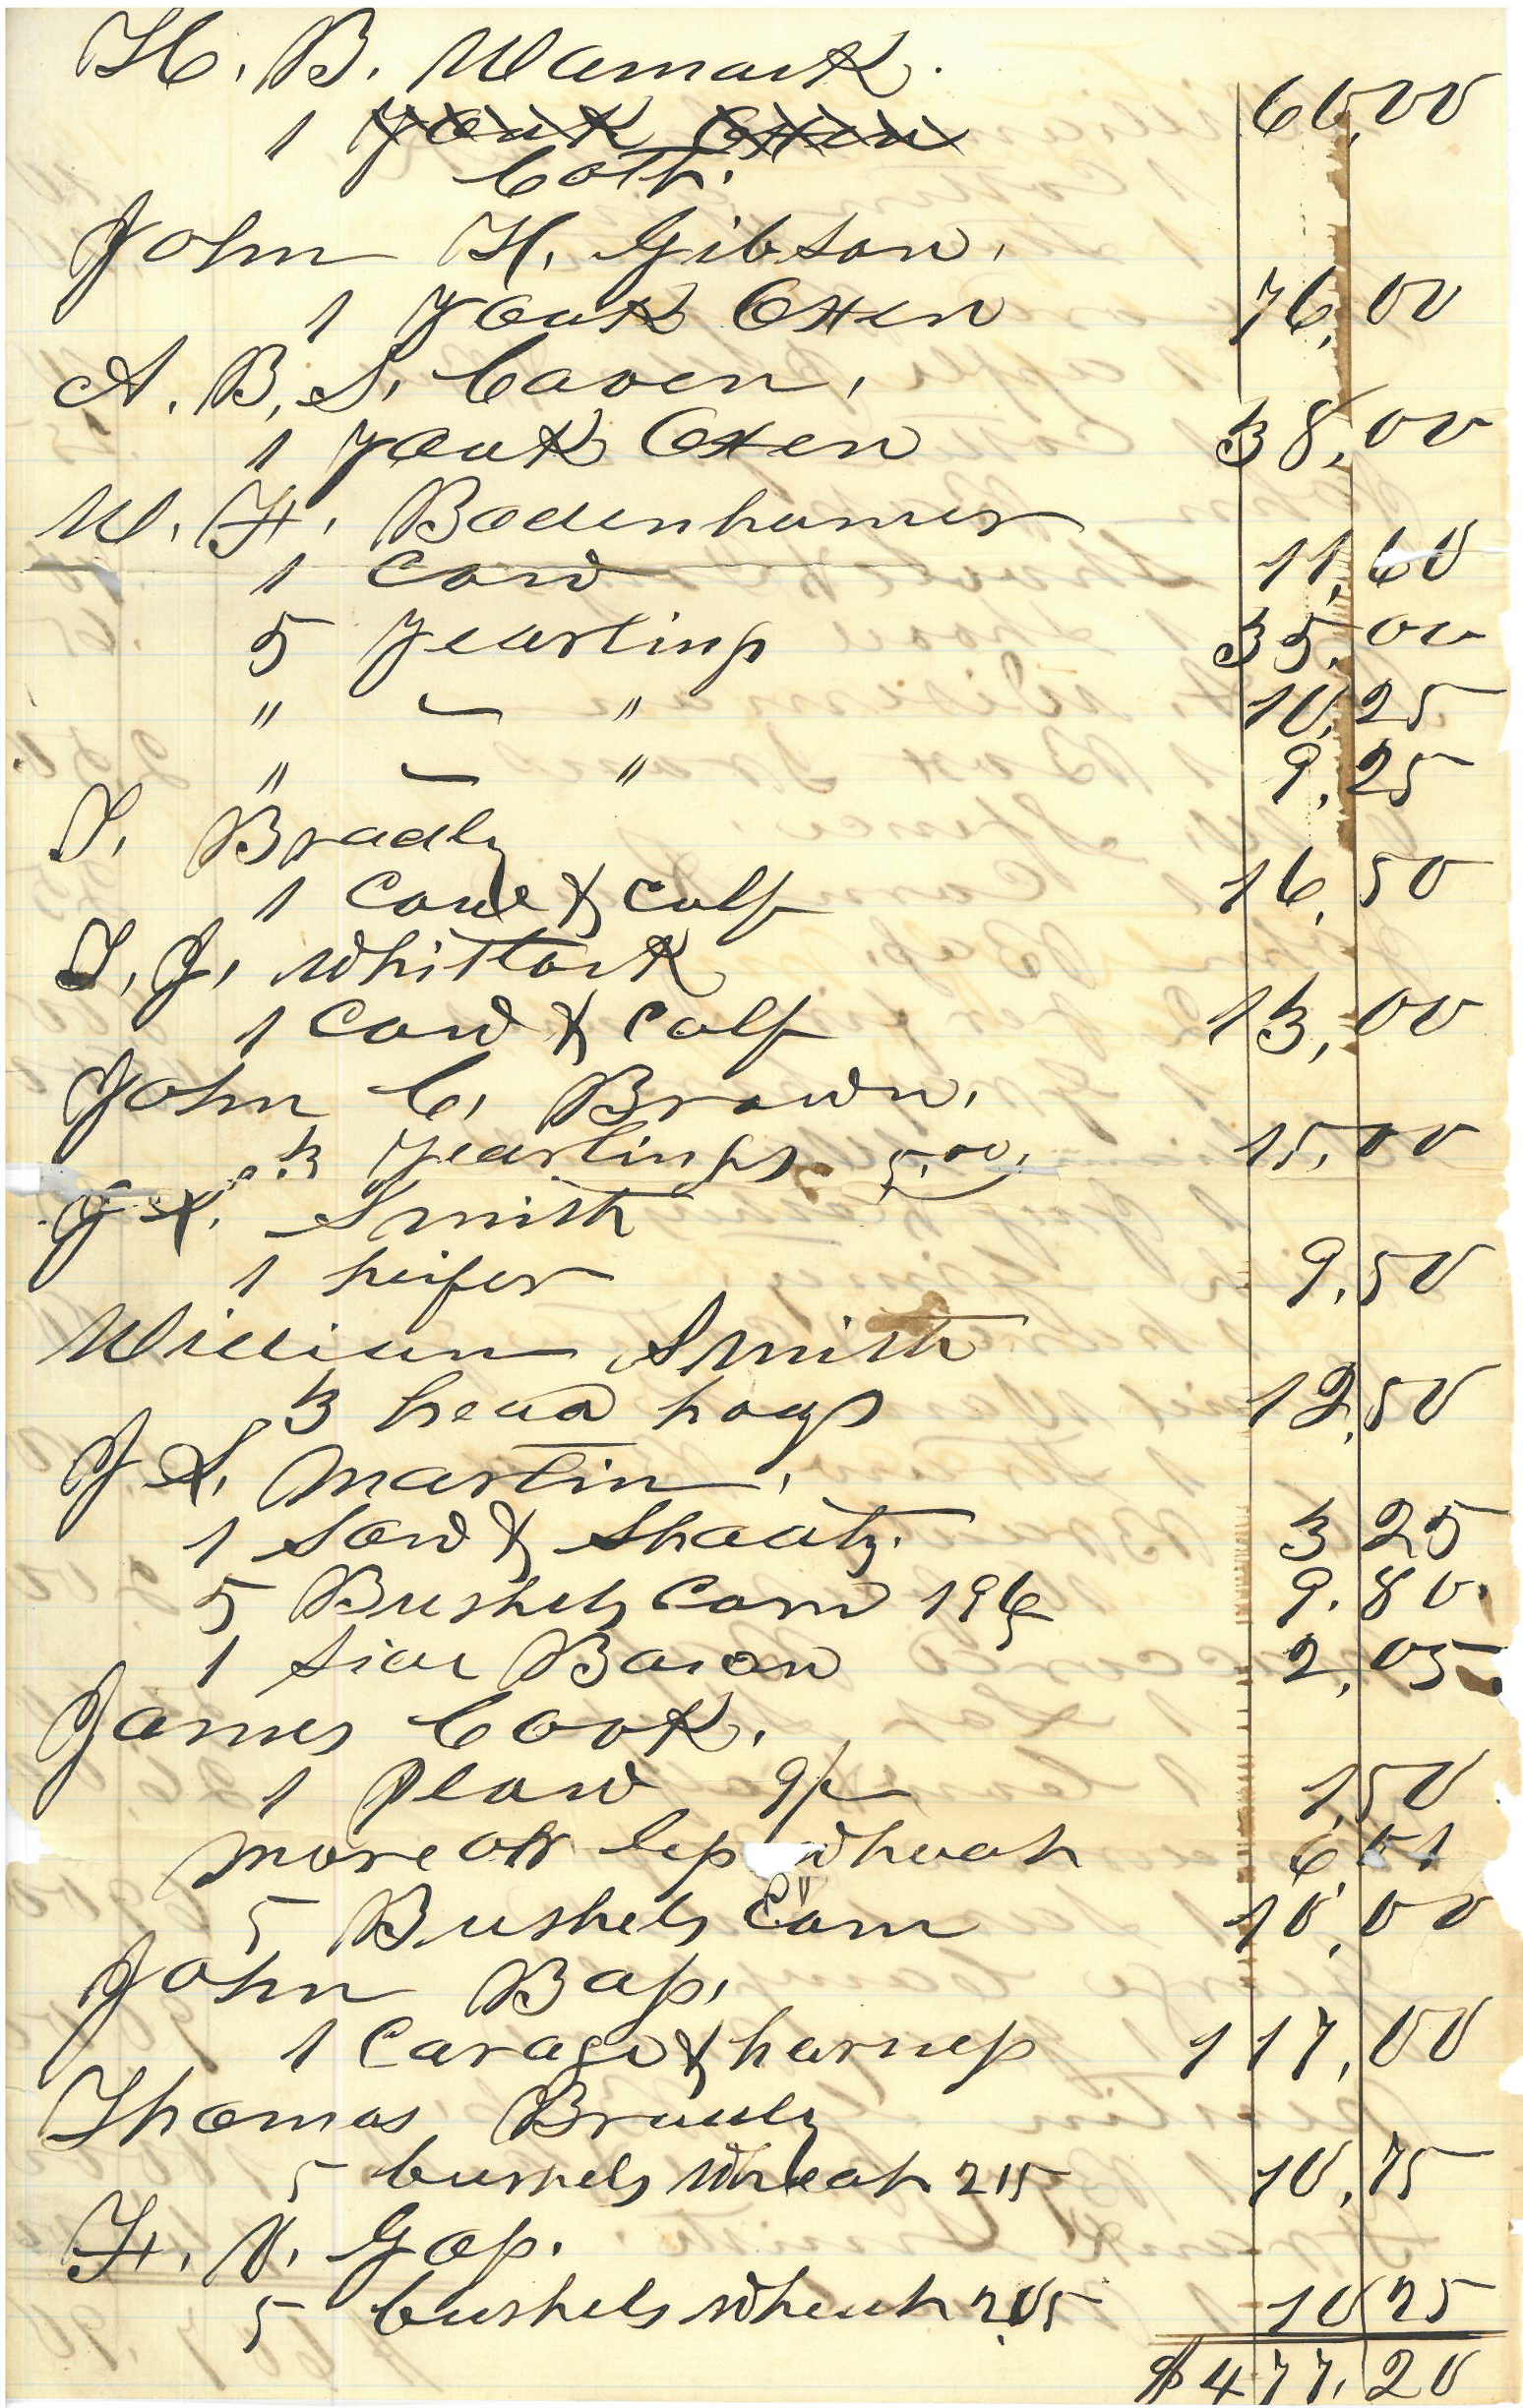 H. B. Wamack. 60,00
1 Youk Oxen
Colt.
John H. Gibson,
1 Youk Oxen 76,00
A. B. S. Caven,
1 Youk Oxen 38,00
W. F. Bodenhamer
1 Cow 11,60
5 Yearlings 35,00
" — " 10,25
" — " 9,25
T. Bradly
1 Cow & Calf 16,50
T. J. Whitlock
1 Cow & Calf 13,00
John C. Brown,
3 Yearlings 5,00, 15,00
J Smith
1 heifer 9,50
William Smith
3 head hogs 12,50
J S. Martin,
1 Sow & Shoats. 3 25
5 Bushels Corn 196 9.80.
1 Side Bacon 2,05
James Cook,
1 Plow 1,50
more or less wheat 6,51
5 Bushels Corn 10,00
John Bass,
1 Carage & harness 117,00
Thomas Bradly
5 bushels Wheat 215 10,75
F. N. Goss.
5 bushels wheat 2.05 10 25
$477.20